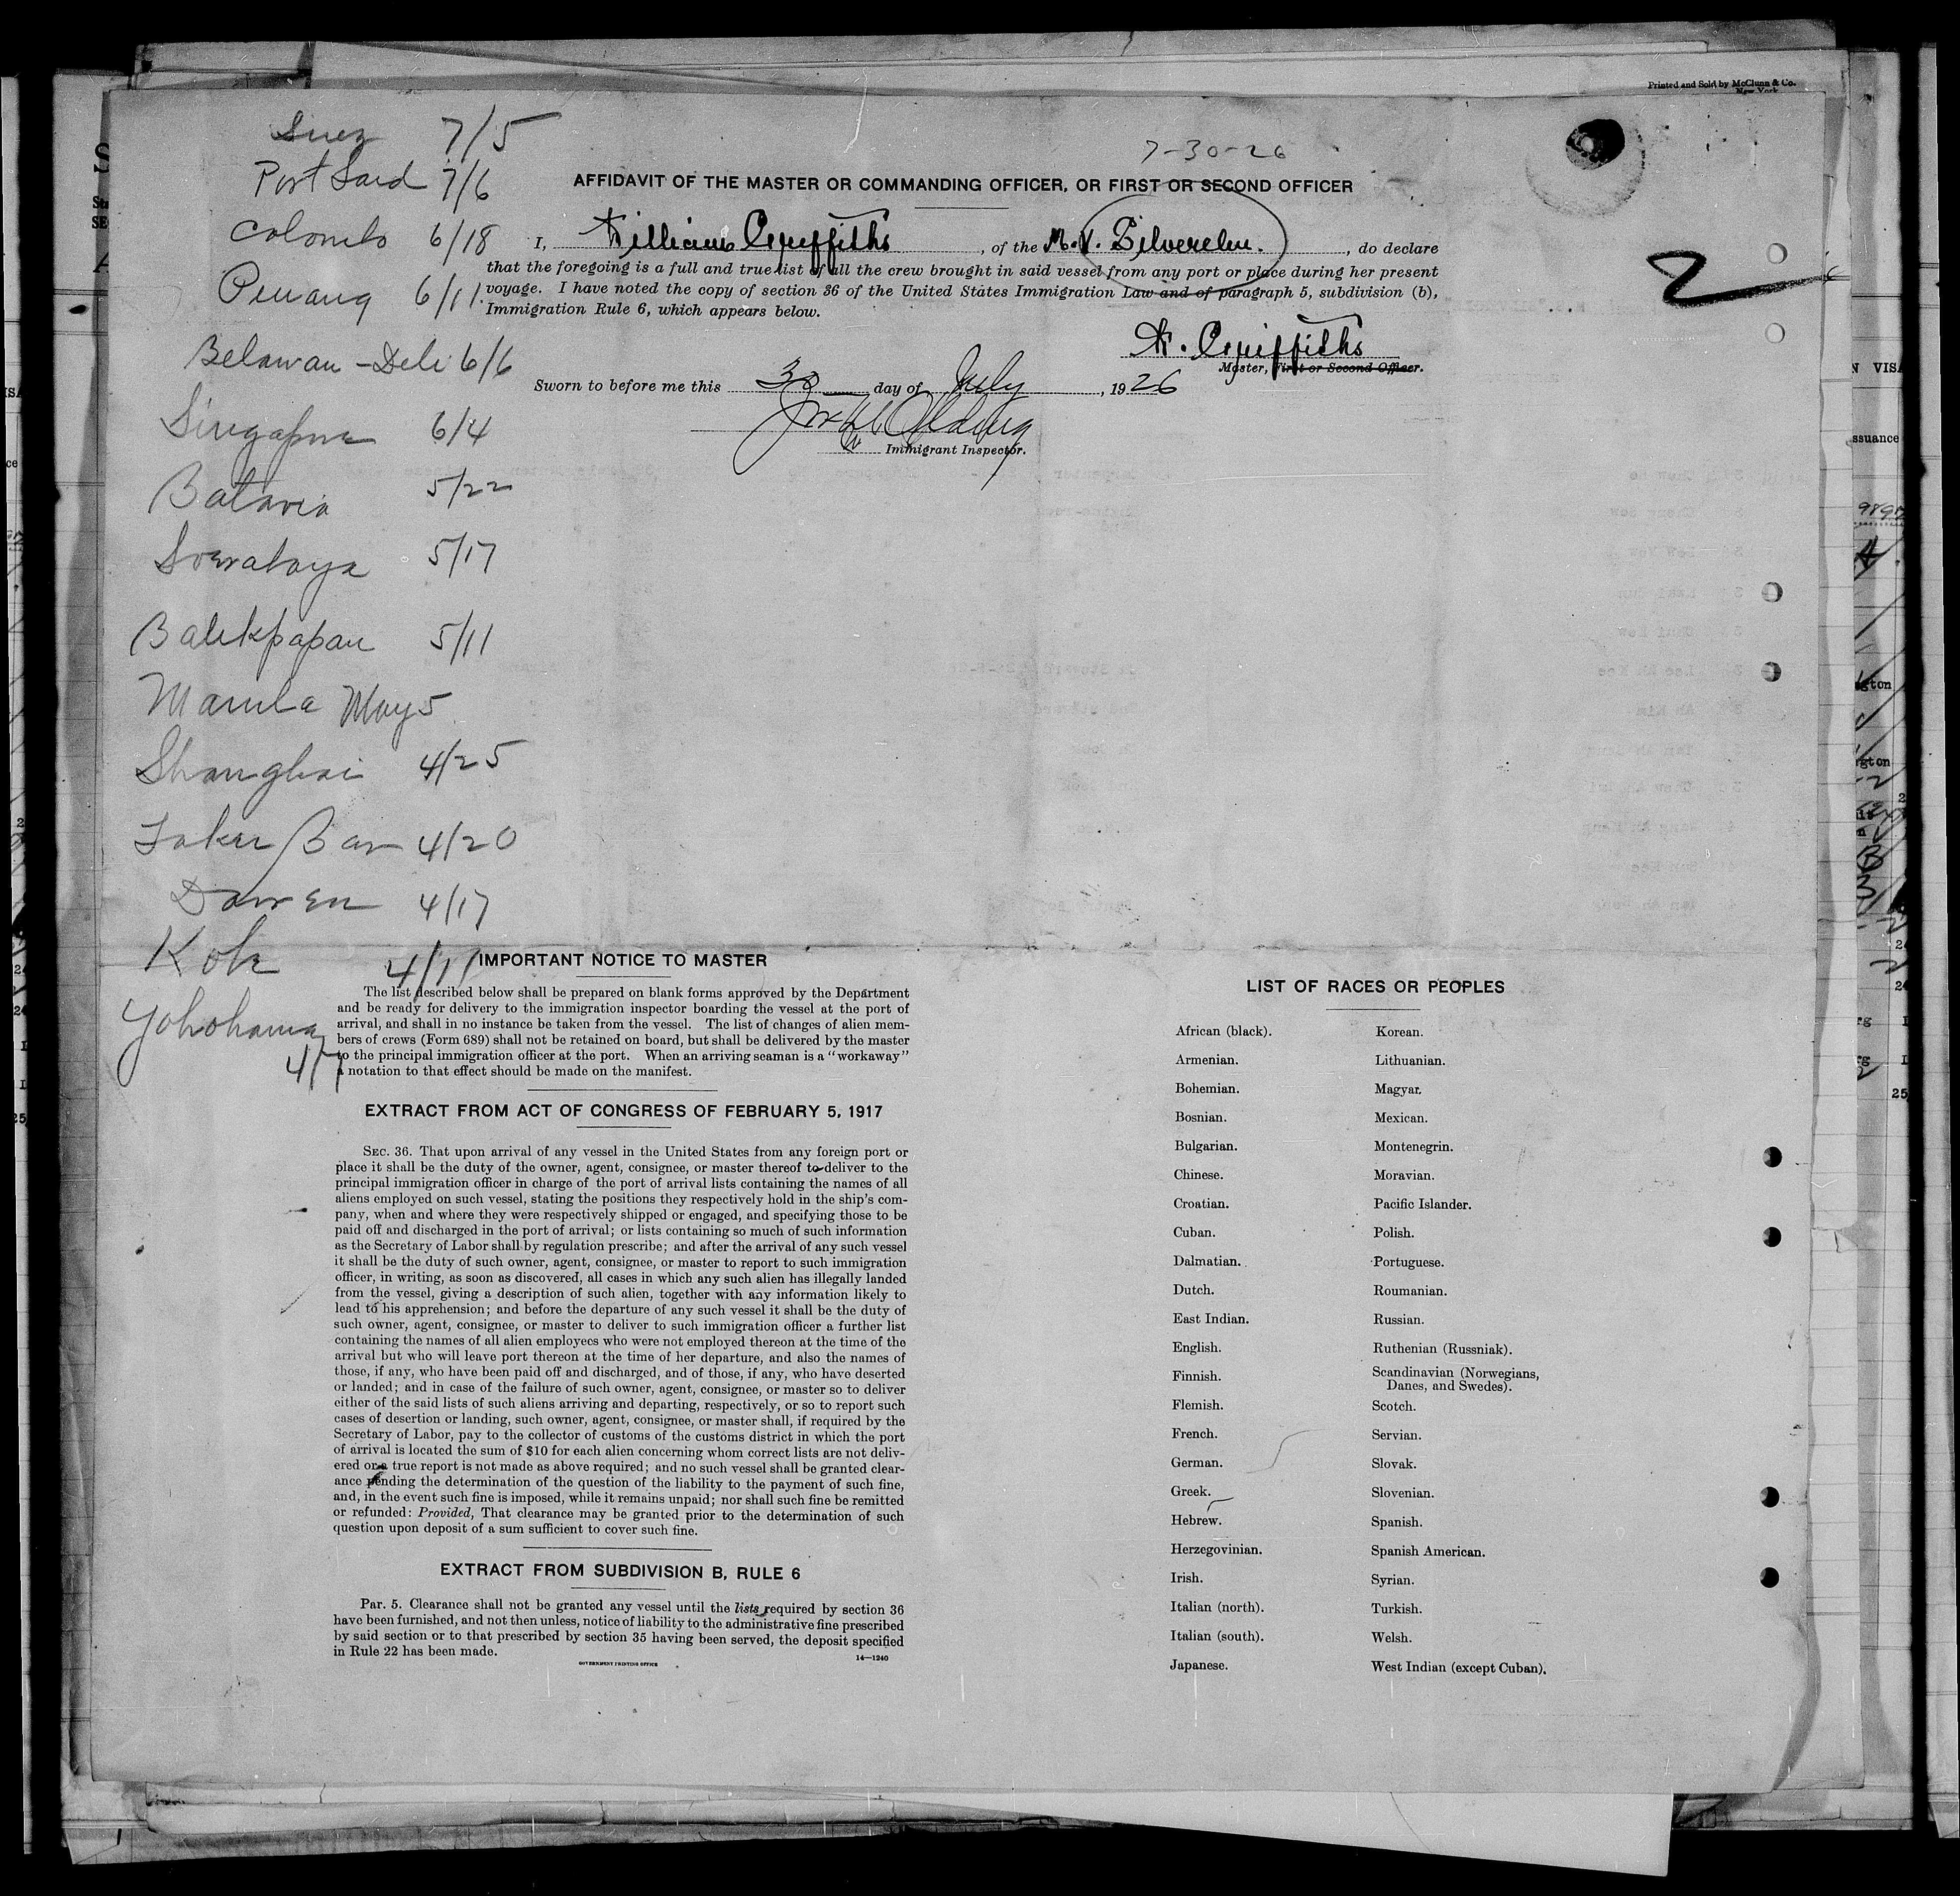 Printed and Sold by McClunn & Co.
New York
7-30-26
Suez 7/5
Port Said 7/6
Colombo 6/18
Penang 6/11
Belawan-Deli 6/6
Singapore 6/4
Batavia 5/22
Soerabaya 5/17
Balikpapan 5/11
Manila May 5
Shanghai 4/25
Taku Bar 4/20
Dairen 4/17
Kobe 4/11
Yokohama
4/7
AFFIDAVIT OF THE MASTER OR COMMANDING OFFICER, OR FIRST OR SECOND OFFICER
I, William Griffiths, of the M.V. Silverelm., do declare
that the foregoing is a full and true list of all the crew brought in said vessel from any port or place during her present
voyage. I have noted the copy of section 36 of the United States Immigration Law and of paragraph 5, subdivision (b),
Immigration Rule 6, which appears below.
W. Griffiths
Master, First or Second Officer.
Sworn to before me this 30 day of July, 1926
Immigrant Inspector.
2
IMPORTANT NOTICE TO MASTER
The list described below shall be prepared on blank forms approved by the Department
and be ready for delivery to the immigration inspector boarding the vessel at the port of
arrival, and shall in no instance be taken from the vessel. The list of changes of alien mem-
bers of crews (Form 689) shall not be retained on board, but shall be delivered by the master
to the principal immigration officer at the port. When an arriving seaman is a "workaway"
a notation to that effect should be made on the manifest.
EXTRACT FROM ACT OF CONGRESS OF FEBRUARY 5, 1917
SEC. 36. That upon arrival of any vessel in the United States from any foreign port or
place it shall be the duty of the owner, agent, consignee, or master thereof to deliver to the
principal immigration officer in charge of the port of arrival lists containing the names of all
aliens employed on such vessel, stating the positions they respectively hold in the ship's com-
pany, when and where they were respectively shipped or engaged, and specifying those to be
paid off and discharged in the port of arrival; or lists containing so much of such information
as the Secretary of Labor shall by regulation prescribe; and after the arrival of any such vessel
it shall be the duty of such owner, agent, consignee, or master to report to such immigration
officer, in writing, as soon as discovered, all cases in which any such alien has illegally landed
from the vessel, giving a description of such alien, together with any information likely to
lead to his apprehension; and before the departure of any such vessel it shall be the duty of
such owner, agent, consignee, or master to deliver to such immigration officer a further list
containing the names of all alien employees who were not employed thereon at the time of the
arrival but who will leave port thereon at the time of her departure, and also the names of
those, if any, who have been paid off and discharged, and of those, if any, who have deserted
or landed; and in case of the failure of such owner, agent, consignee, or master so to deliver
either of the said lists of such aliens arriving and departing, respectively, or so to report such
cases of desertion or landing, such owner, agent, consignee, or master shall, if required by the
Secretary of Labor, pay to the collector of customs of the customs district in which the port
of arrival is located the sum of $10 for each alien concerning whom correct lists are not deliv-
ered or a true report is not made as above required; and no such vessel shall be granted clear-
ance pending the determination of the question of the liability to the payment of such fine,
and, in the event such fine is imposed, while it remains unpaid; nor shall such fine be remitted
or refunded: Provided, That clearance may be granted prior to the determination of such
question upon deposit of a sum sufficient to cover such fine.
EXTRACT FROM SUBDIVISION B, RULE 6
Par. 5. Clearance shall not be granted any vessel until the lists required by section 36
have been furnished, and not then unless, notice of liability to the administrative fine prescribed
by said section or to that prescribed by section 35 having been served, the deposit specified
in Rule 22 has been made.
14—1240
GOVERNMENT PRINTING OFFICE
LIST OF RACES OR PEOPLES
African (black).
Armenian.
Bohemian.
Bosnian.
Bulgarian.
Chinese.
Croatian.
Cuban.
Dalmatian.
Dutch.
East Indian.
English.
Finnish.
Flemish.
French.
German.
Greek.
Hebrew.
Herzegovinian.
Irish.
Italian (north).
Italian (south).
Japanese.
Korean.
Lithuanian.
Magyar.
Mexican.
Montenegrin.
Moravian.
Pacific Islander.
Polish.
Portuguese.
Roumanian.
Russian.
Ruthenian (Russniak).
Scandinavian (Norwegians,
Danes, and Swedes).
Scotch.
Servian.
Slovak.
Slovenian.
Spanish.
Spanish American.
Syrian.
Turkish.
Welsh.
West Indian (except Cuban).